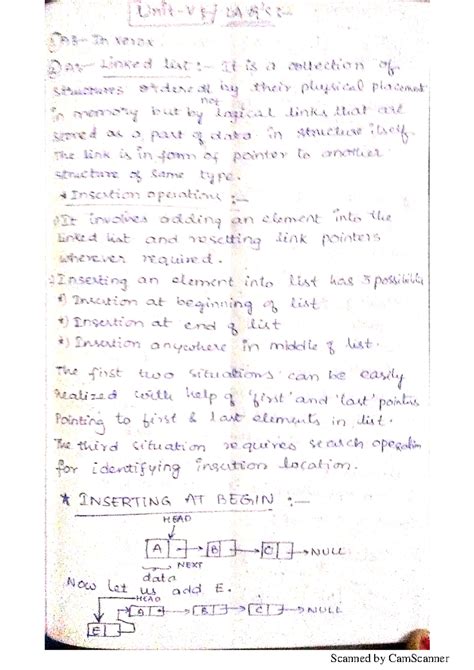 Unit-V LAQ's :-
1) A3- In xerox.
2) A3- Linked list :- It is a collection of
structures ordered by their physical placement
not
in memory but by logical links that are
stored as a part of data in structure itself.
The link is in form of pointer to another
structure of same type.
* Insertion operation :-
It involves adding an element into the
linked list and resetting link pointers
wherever required.
Inserting an element into list has 3 possibilities
*) Insertion at beginning of list
*) Insertion at end of list
*) Insertion anywhere in middle of list.
The first two situations can be easily
realized with help of 'first' and 'last' pointers
Pointing to first & last elements in list.
The third situation requires search operation
for identifying insertion location.
* INSERTING AT BEGIN :-
HEAD
A B C NULL
NEXT
data
Now let us add E.
HEAD
A B C NULL
E
Scanned by CamScanner